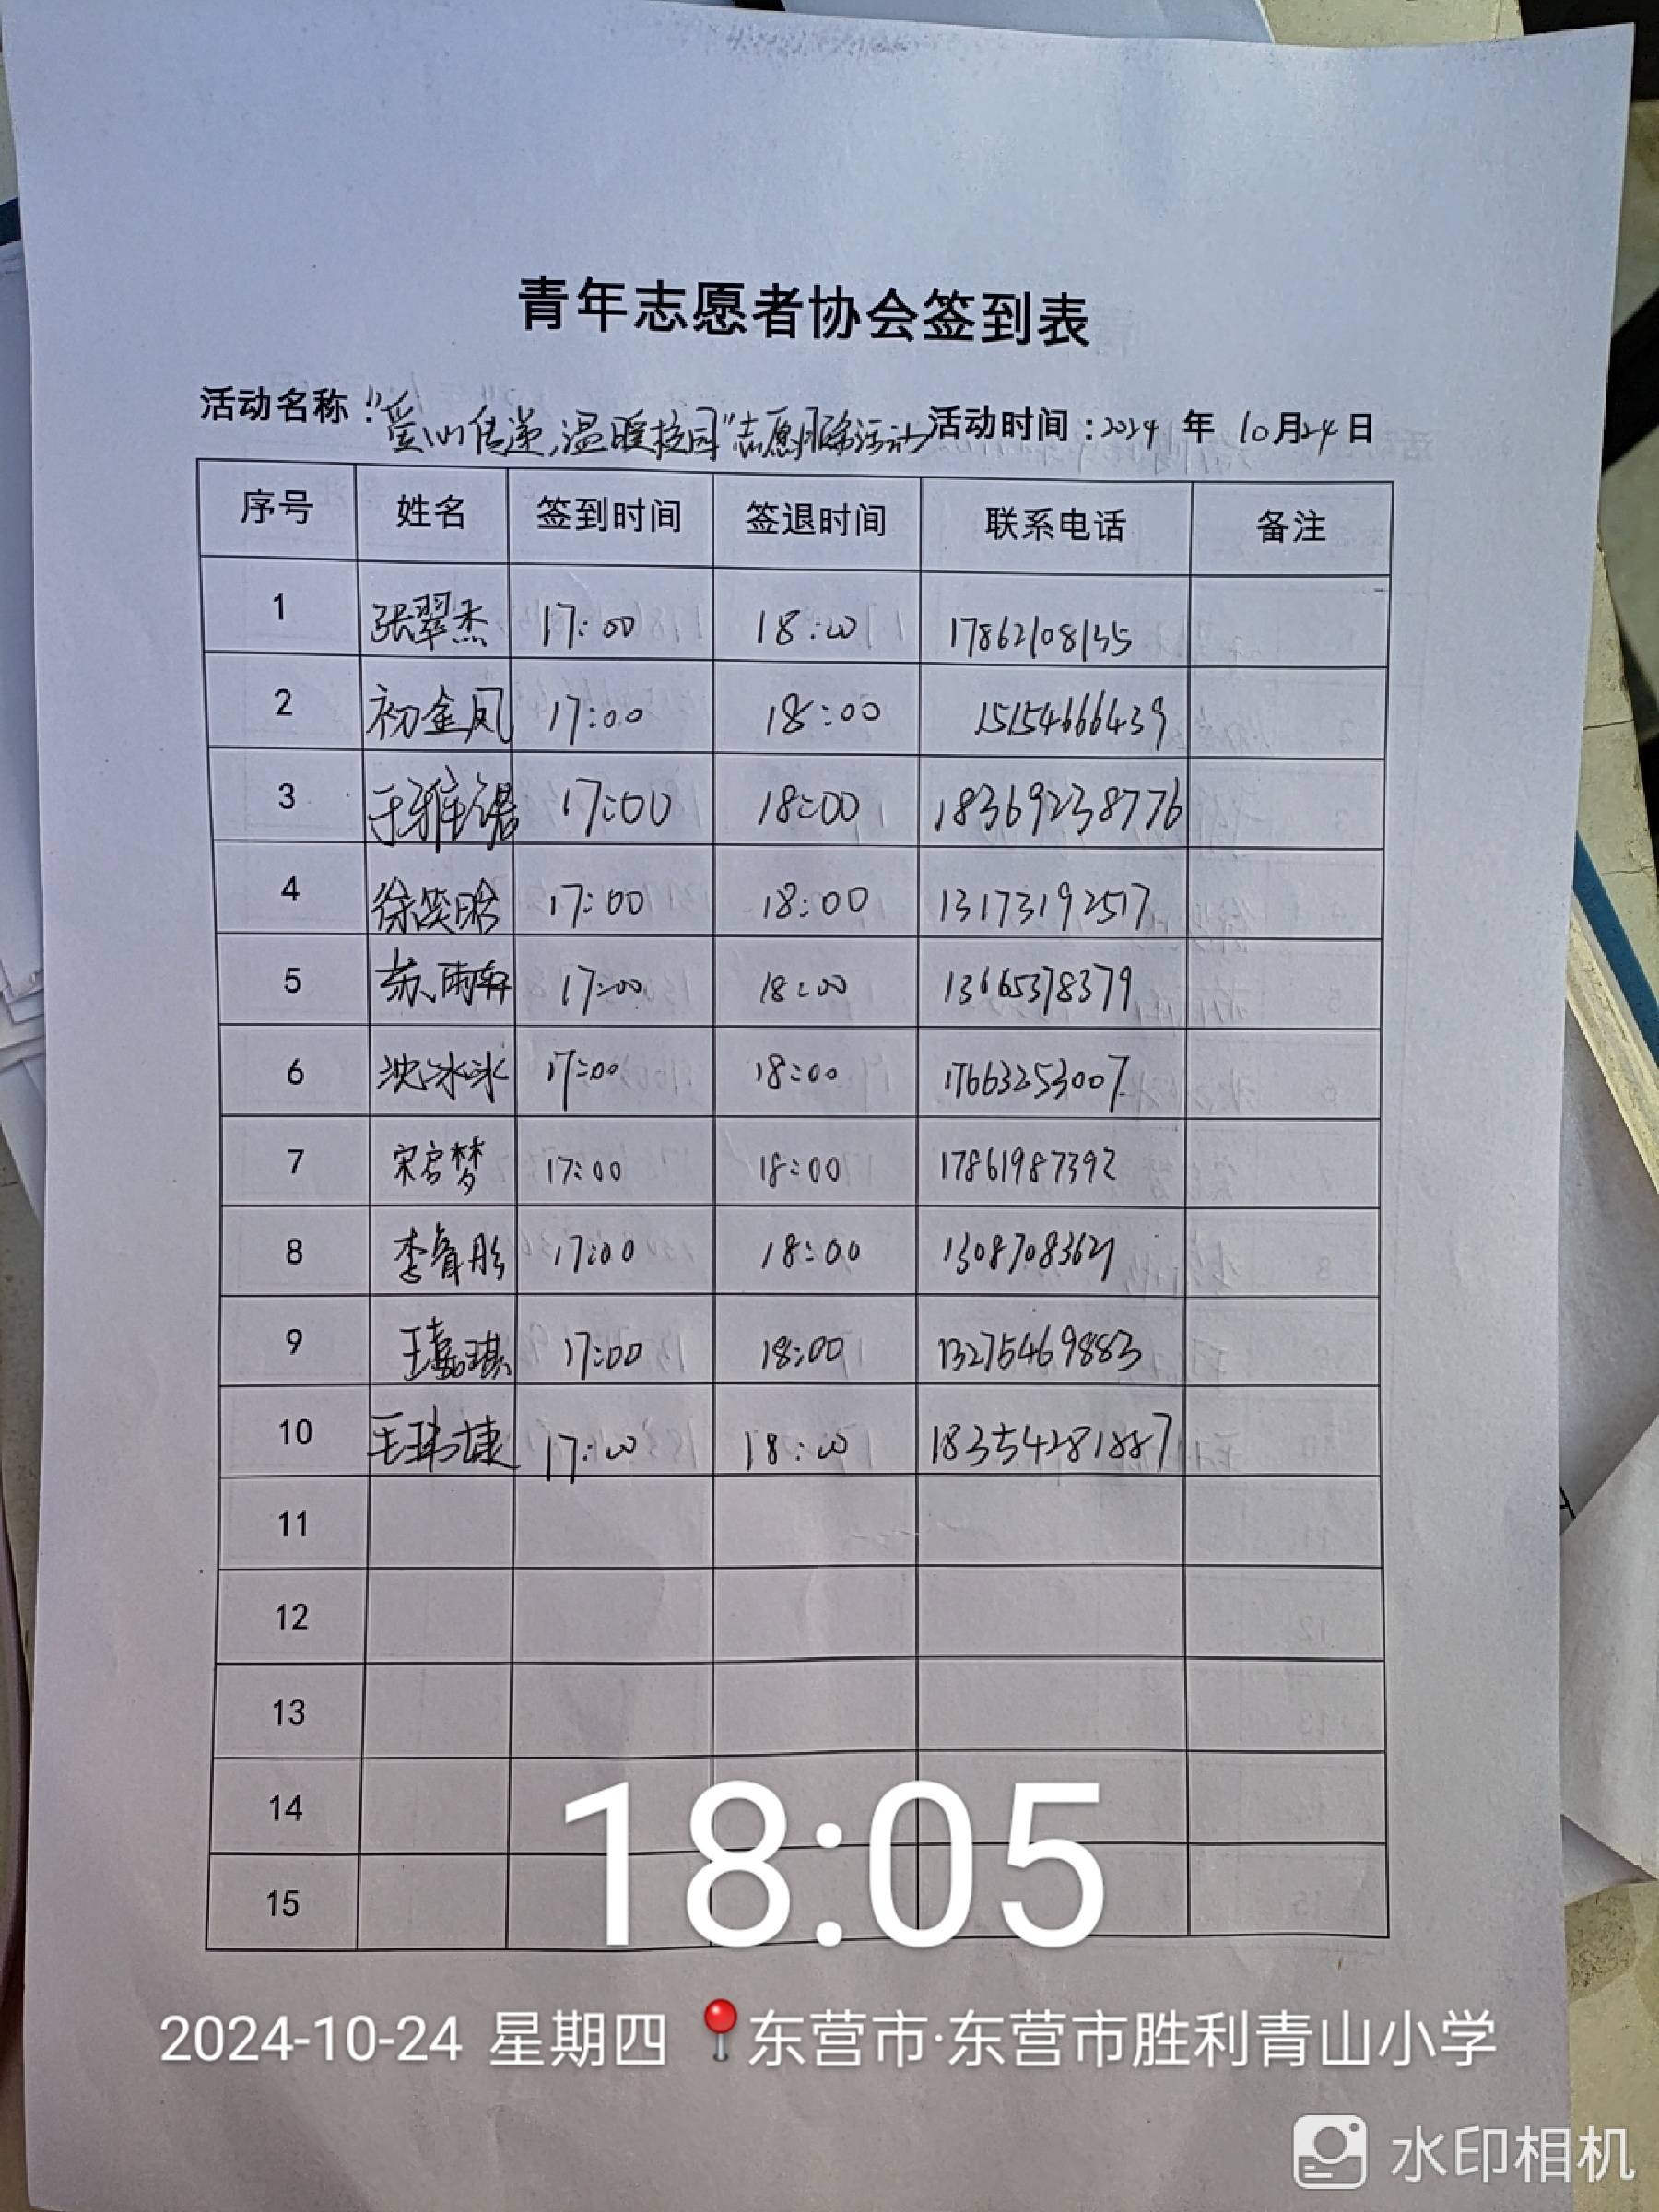 青年志愿者协会签到表
活动名称："爱心传递,温暖校园"志愿服务活动 活动时间：2024 年 10月24日
序号 姓名 签到时间 签退时间 联系电话 备注
1 张翠杰 17:00 18:00 17862108135
2 初金凤 17:00 18:00 15154666439
3 于雅诺 17:00 18:00 18369238776
4 徐笑晗 17:00 18:00 13173192517
5 苏雨轩 17:00 18:00 13665378379
6 沈冰冰 17:00 18:00 17663253007
7 宋启梦 17:00 18:00 17861987392
8 李睿彤 17:00 18:00
9 王嘉琪 17:00 18:00 13275469883
10 王玮婕 17:00 18:00 18354281887
11
12
13
14
15
18:05
2024-10-24 星期四 东营市·东营市胜利青山小学
水印相机